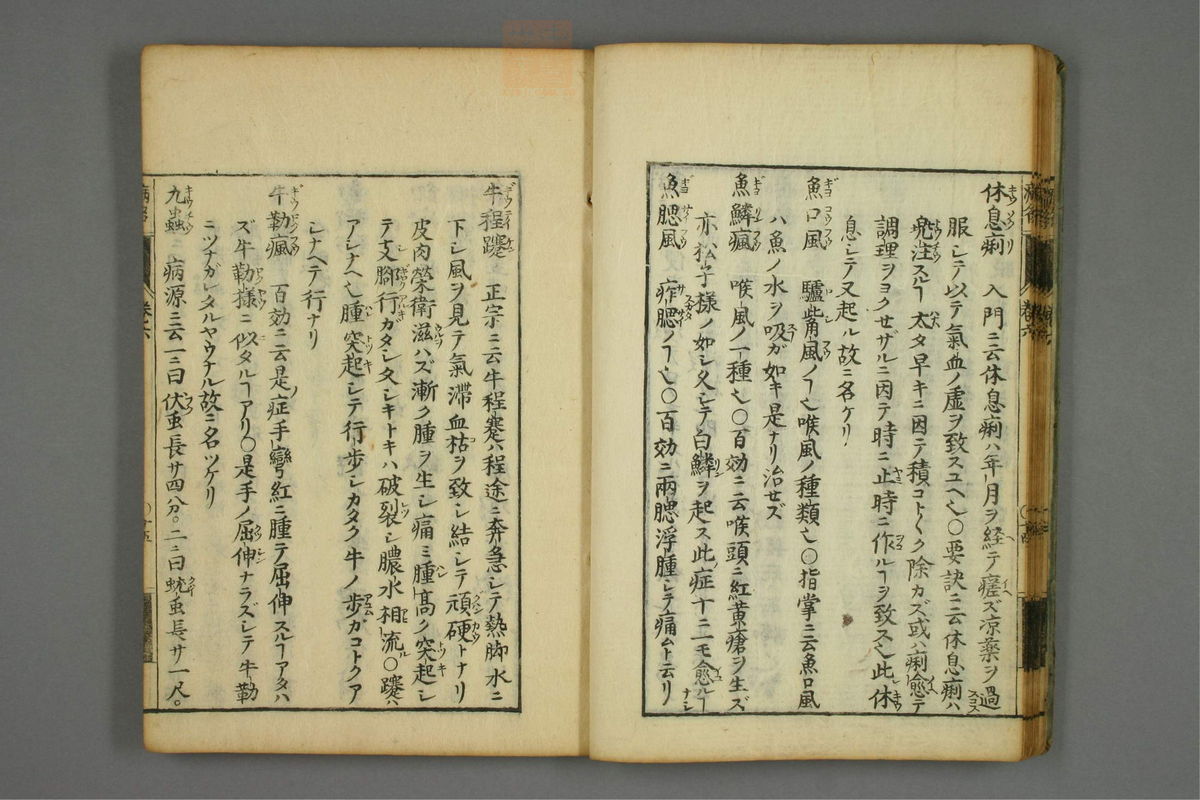 休息痢 入門ニ云休息痢ハ年月ヲ経テ瘥ズ凉藥ヲ過
服シテ以テ氣血ノ虚ヲ致スユヘ也〇要訣ニ云休息痢ハ
兠澁スルヿ太タ早キニ因テ積コト〱ク除カズ或ハ痢愈テ
調理ヲヨクセザルニ因テ時ニ止時ニ作ルヿヲ致ス也此休
息シテ又起ル故ニ名ケリ
魚口風 驢嘴風ノヿ也喉風ノ種類也〇指掌ニ云魚口風
ハ魚ノ水ヲ吸ガ如キ是ナリ治セズ
魚鱗瘋 喉風ノ一種也〇百効ニ云喉頭ニ紅黄瘡ヲ生ズ
亦松子様ノ如シ久シテノ白鱗ヲ起ス此症十ニ一モ愈ルヿナシ
魚腮風 痄腮ノヿ也〇百効ニ兩腮浮腫シテ痛ムト云リ
牛程蹇 正宗ニ云牛程蹇ハ程途ニ奔急シテ熱脚水ニ
下シ風ヲ見テ氣滯血枯ヲ致シ結シテ頑硬トナリ
皮肉榮衛滋ハズ漸ク腫ヲ生シ痛ミ腫髙ク突起シ
テ支脚行ガタシ久シキトキハ破裂シ膿水相流〇蹇ハ
アシナヘ也腫突起シテ行歩シカタク牛ノ歩ガコトクア
シナヘテ行ナリ
牛勒瘋 百効ニ云是症手彎紅ニ腫テ屈伸スルヿアタハ
ズ牛勒様ニ似タルヿアリ〇是手ノ屈伸ナラズシテ牛勒
ニツナガレタルヤウナル故ニ名ツケリ
九蟲 病源ニ云一ニ曰伏虫長サ四分。二ニ曰蚘虫長サ一尺。
卷六